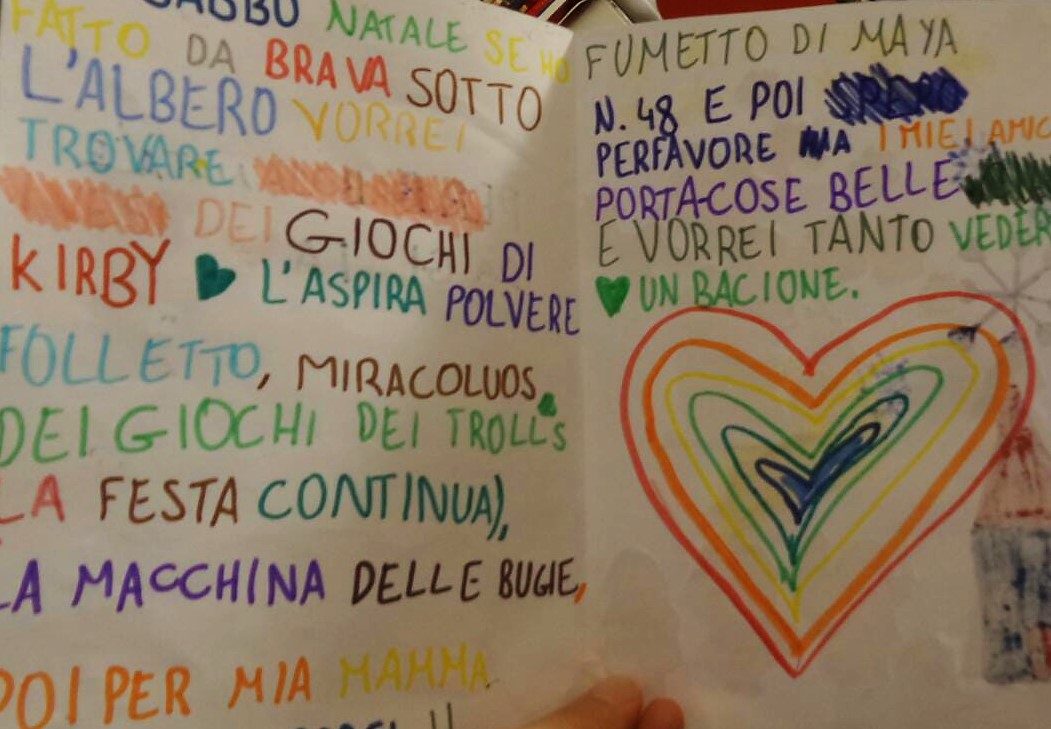 BABBO NATALE SE HO
FATTO DA BRAVA SOTTO
L'ALBERO VORREI
TROVARE
DEI GIOCHI DI
KIRBY L'ASPIRA POLVERE
FOLLETTO, MIRACOLUOS,
DEI GIOCHI DEI TROLLS
LA FESTA CONTINUA),
LA MACCHINA DELLE BUGIE,
POI PER MIA MAMMA
FUMETTO DI MAYA
N. 48 E POI
PERFAVORE A I MIEI AMIC
PORTA COSE BELLE
E VORREI TANTO VEDER
UN BACIONE.